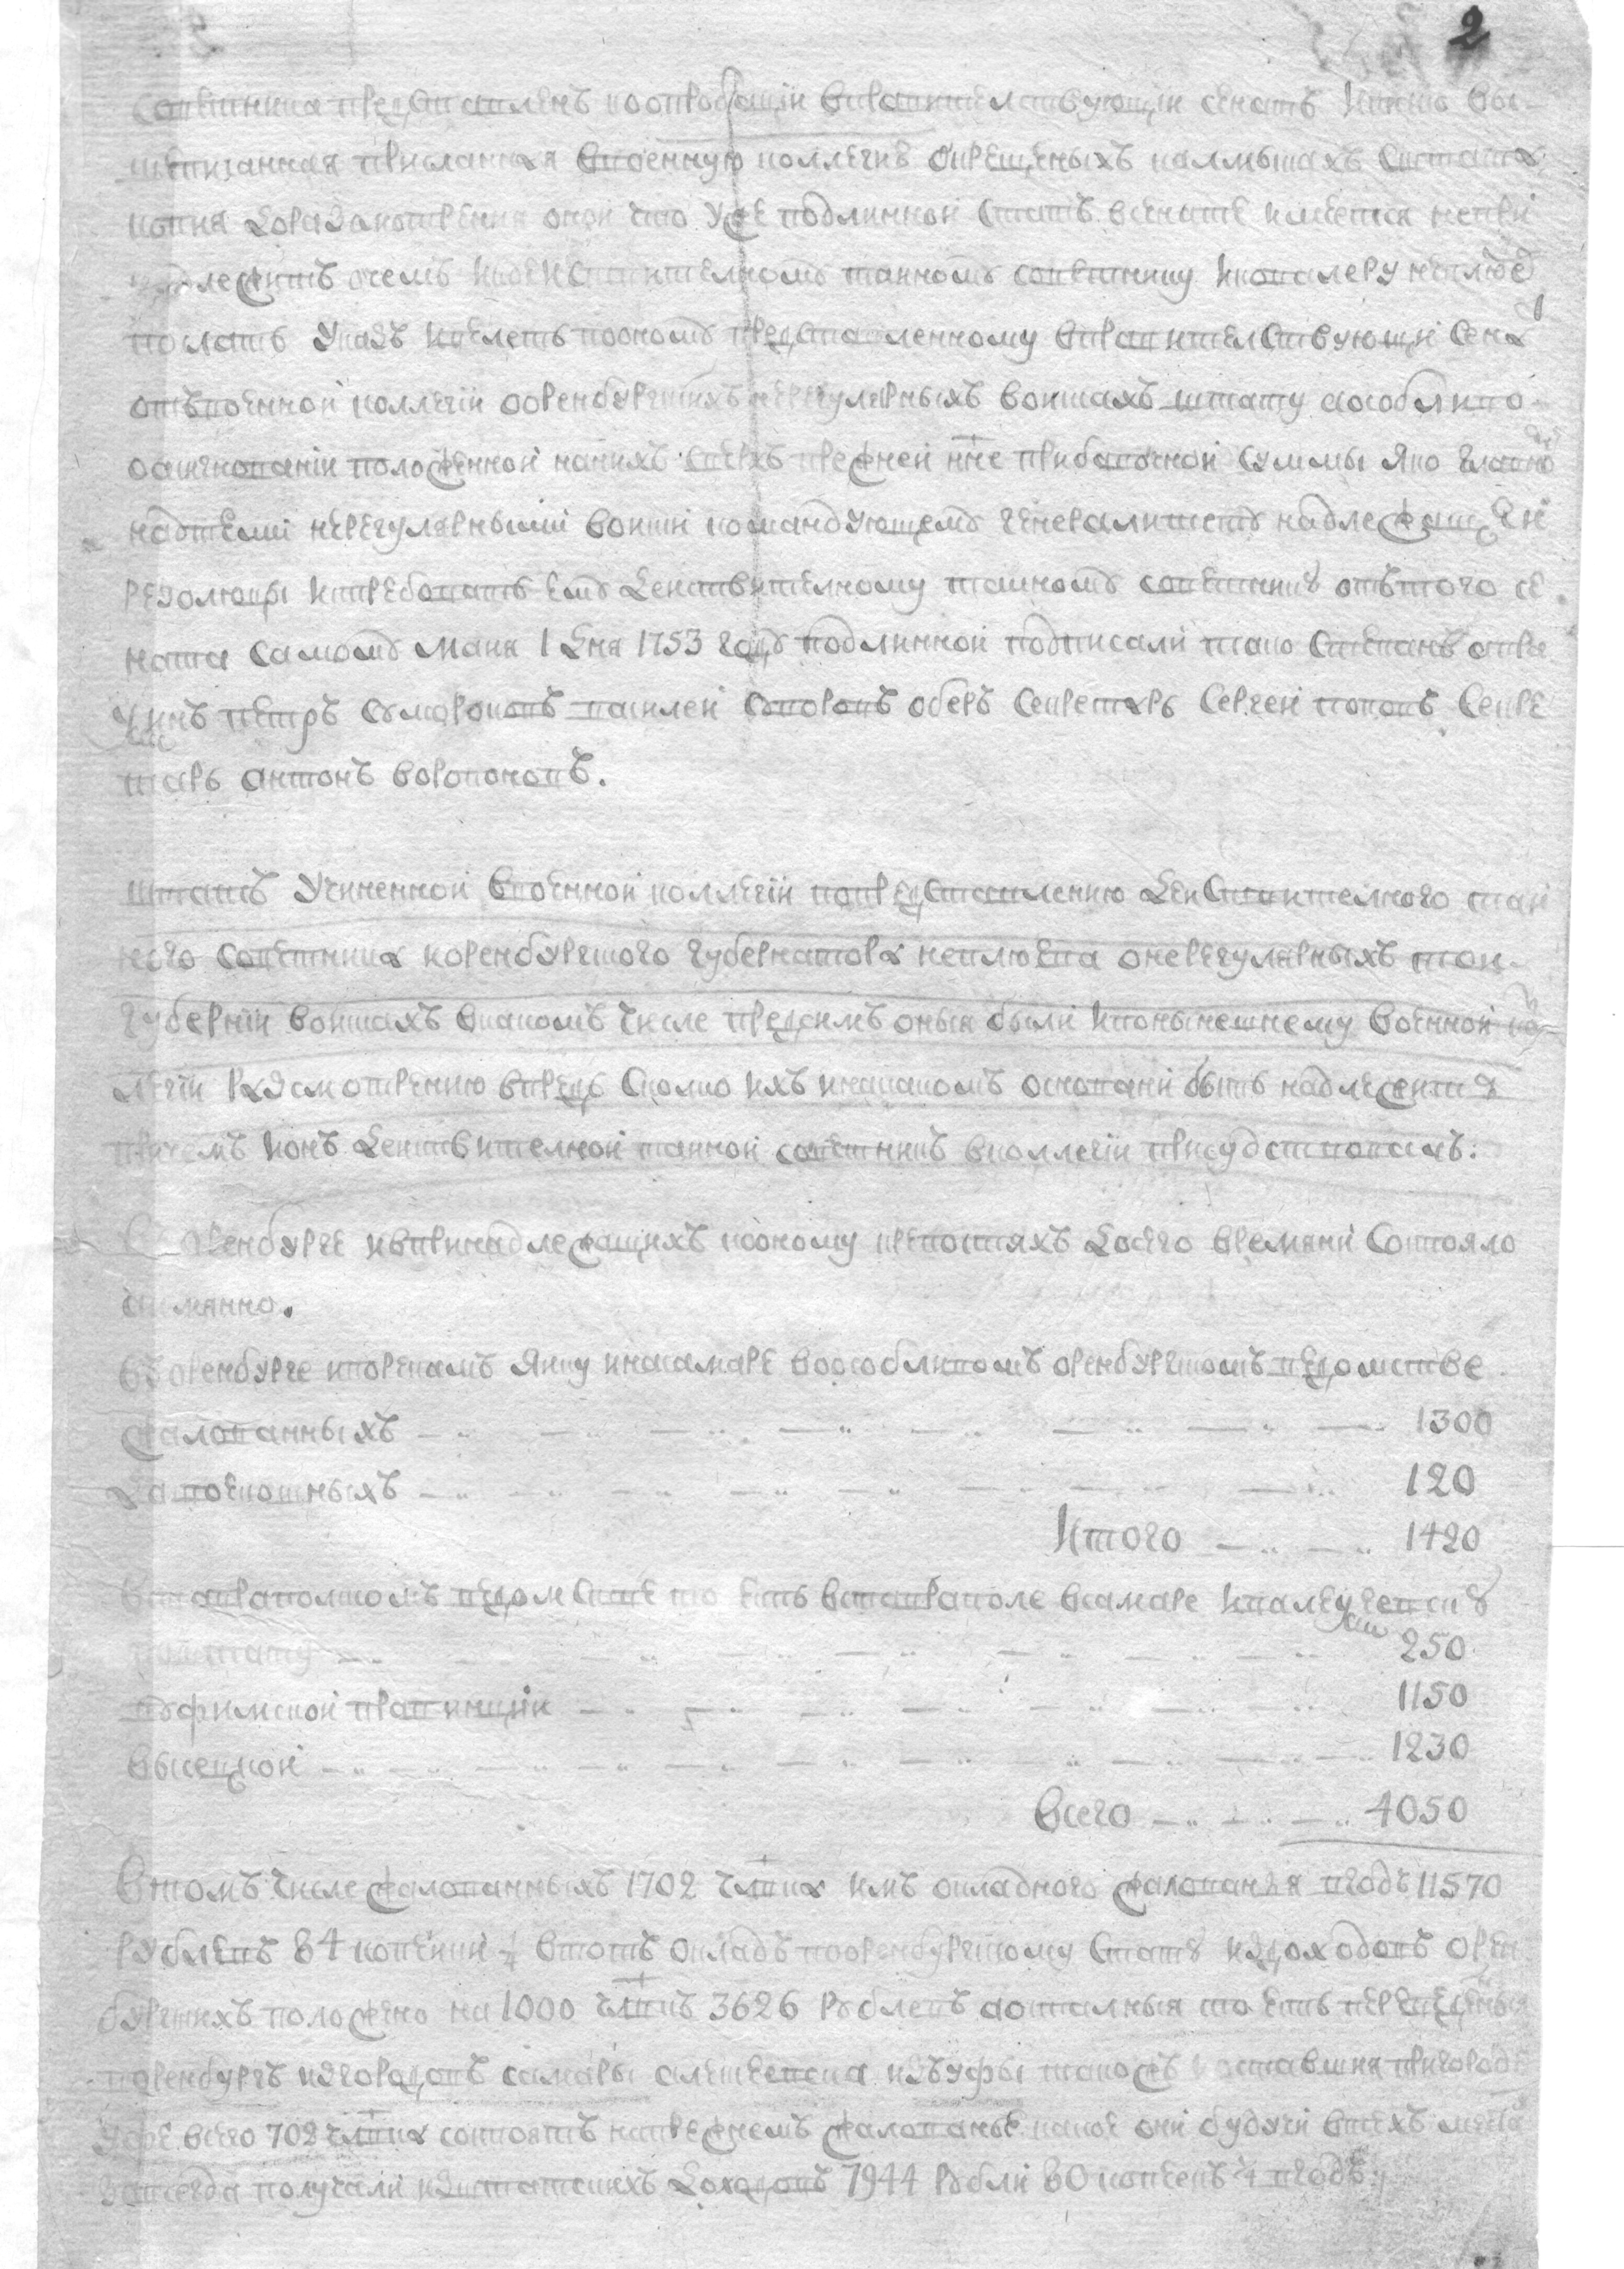 2
советника представленъ коопробацïи вправителствующïи сенатъ ккоторо вы-
шеписанная присланная ввоенную коллегию окрещеныхъ калмыкахъ статна
копия для разсмотрения оной что уже подлинной статъ всенате имеется
надлежитъ очемъ действителному тайному советнику икавалеру неплюеву
послать указъ ивелеть пооному представленному вправителствующïи сена
отъ военной коллегïи ооренбургскихъ нерегулярныхъ воискахъ штату аособливо
оассигнованïи положенной нанихъ сверхъ прежнеи нне прибавочной суммы яко главно
надтеми нерегулярными воиски командующему генералитету надлежащеи
резолюцыи итребовать ему действителному тайному советнику отътого се
ната самому маия 1 дня 1753 году подлинной подписали тако степанъ апра
ѯинъ петръ сумороковъ василеи суворовъ оберъ секретарь сергеи поповъ секре
тарь антонъ воропоновъ.
штатъ учиненной ввоенной коллегïи попредставлению действителного таи
ного советника иоренбургского губернатора неплюева онерегулярныхъ тои
губернïи воискахъ вкакомъ числе предсимъ оныя были ипонынешнему военной ко
легïи разсмотрению впредь сколко ихъ инакакомъ основанïи быть надлежитъ
причемъ ионъ действителной тайной советникъ вколлегïи присудствовалъ:
Воренбурге ивпринадлежащихъ кооному крепостяхъ досего времяни состояло
аимянно.
въоренбурге ипорекамъ яику инасамаре воособливомъ оренбургскомъ ведомстве
жалованныхъ 1300
заповерошныхъ 120
Итого 1420
вставраполскомъ ведомстве то есть вставраполе всамаре иналеѯеевску
поштату 250
вуфимской правинцïи 1150
высецкой 1230
всего 4050
Втомъ числе жалованныхъ 1702 члвка имъ окладного жалованья вгодъ 11570
рублевъ 84 копеики ¼ втотъ окладъ пооренбургскому стату издоходовъ орен
бургскихъ положено на 1000 члвкъ 3626 рублевъ аосталныя то есть переведеныя
воренбургъ изгородовъ самары алексеевска изъуфы такожъ иоставшия пригородѣ
уфе всего 702 члвка состоятъ напрежнемъ жалованье какое они будучи втехъ места
завсегда получали изштатскихъ доходовъ 7944 рубли 80 копеекъ ¼ вгодъ